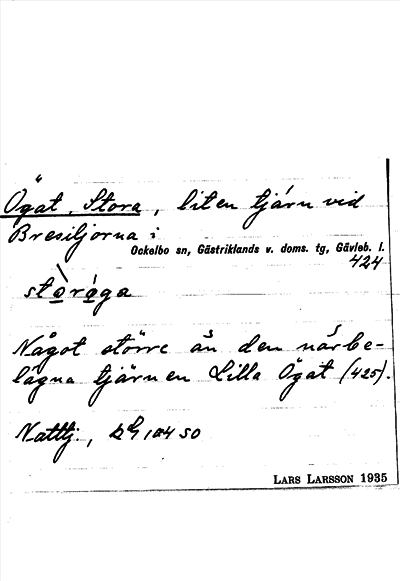 Ögat, Stora, liten tjärn vid
Bresiljorna i
Ockelbo sn, Gästriklands v. doms. tg, Gävleb. l.
424
Något större än den närbe-
lägna tjärnen Lilla Ögat (425).
Nattj.,
LARS LARSSON 1935